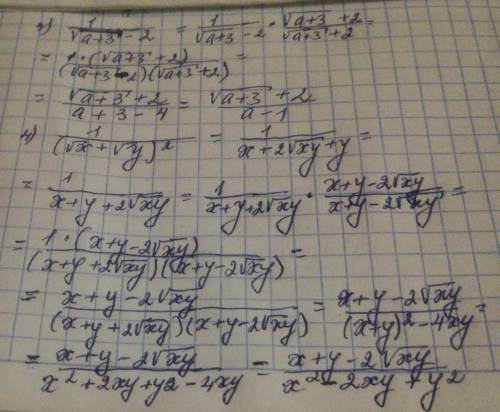 3) 1/(√(a+3) - 2) = 1/(√(a+3) - 2) · (√(a+3) + 2)/(√(a+3) + 2) =
= 1·(√(a+3) + 2)/((√(a+3) - 2)(√(a+3) + 2)) =
= (√(a+3) + 2)/(a + 3 - 4) = (√(a+3) + 2)/(a - 1)
4) 1/(√x + √y)² = 1/(x + 2√xy + y) =
= 1/(x + y + 2√xy) = 1/(x + y + 2√xy) · (x + y - 2√xy)/(x + y - 2√xy) =
= 1·(x + y - 2√xy)/((x + y + 2√xy)(x + y - 2√xy)) =
= (x + y - 2√xy)/((x + y + 2√xy)(x + y - 2√xy)) = (x + y - 2√xy)/((x + y)² - 4xy) =
= (x + y - 2√xy)/(x² + 2xy + y2 - 4xy) = (x + y - 2√xy)/(x² - 2xy + y²)